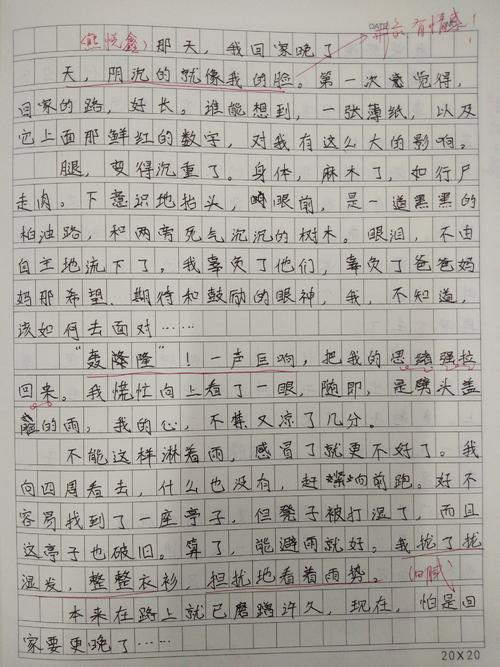 DATE
开头有情感！
(熊悦鑫) 那天，我回家晚了
天，阴沉的就像我的脸。第一次竟觉得，
回家的路，好长。谁能想到，一张薄纸，以及
它上面那鲜红的数字，对我有这么大的影响。
腿，变得沉重了。身体，麻木了，如行尸
走肉。下意识地抬头，眼前，是一道黑黑的
柏油路，和两旁死气沉沉的树木。眼泪，不由
自主地流下了。我辜负了他们，辜负了爸爸妈
妈那希望、期待和鼓励的眼神，我，不知道，
该如何去面对……
"轰隆隆"！一声巨响，把我的思绪强拉
回来。我慌忙向上看了一眼，随即，是劈头盖
脸的雨，我的心，不禁又凉了几分。
不能这样淋着雨，感冒了就更不好了。我
向四周看去，什么也没有，赶紧向前跑。好不
容易找到了一座亭子，但凳子被打湿了，而且
这亭子也破旧。算了，能避雨就好。我拢了拢
湿发，整整衣衫，担扰地看着雨势。(细腻)
本来在路上就已磨蹭许久，现在，怕是回
家要更晚了……
20×20